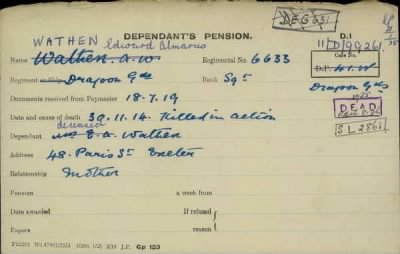 DEG 631
DEPENDANT'S PENSION.
D.1
WATHEN Edward Almarus
11/D/9926
Name Wathen. A. W. Regimental No. 6633
Case No.
Regiment or Ship Dragoon Gds Rank Sgt
Dragoon Gds
Documents received from Paymaster 18.7.19
DEAD
Date and causes of death 30.11.14. Killed in action
SL 2861
deceased
Dependant Mrs E. A. Wathen
Address 48. Paris St Exeter
Relationship Mother
Pension a week from
Date awarded If refused
Papers reason
J.P. Gp 153